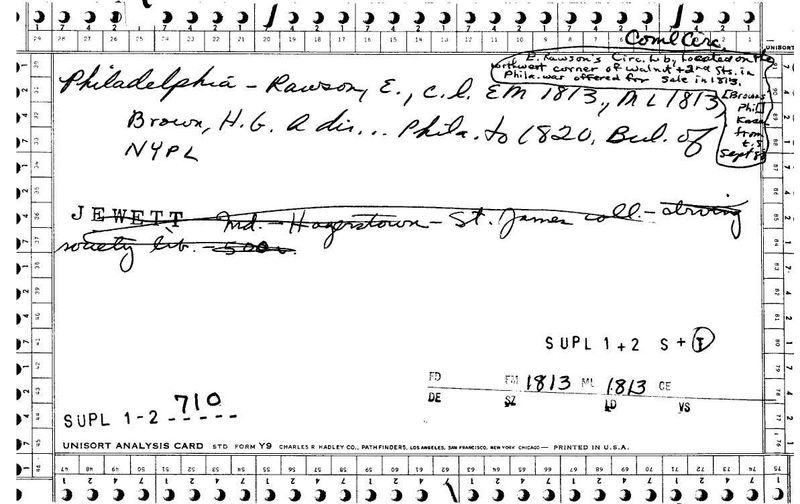 Coml Circ.
E. Rawson's Circ. Lib, located on the
northwest corner of Walnut + 2nd Sts. in
Phila. was offered for sale in 1813.
[Browns
Phil]
from
t.s
Sept 88
Philadelphia - Rawson, E., c.l. EM 1813, ML 1813
Brown, H.G. A dir... Phila. to 1820, Bul. of
NYPL
JEWETT Md. - Hagerstown - St. James coll. -
society lib. - 500 v.
SUPL 1+2 S+I
FD EM 1813 ML 1813 CE
DE SZ LD VS
SUPL 1-2 710
UNISORT ANALYSIS CARD STD FORM Y9 CHARLES R HADLEY CO., PATHFINDERS, LOS ANGELES, SAN FRANCISCO, NEW YORK CHICAGO — PRINTED IN U.S.A.
UNISORT